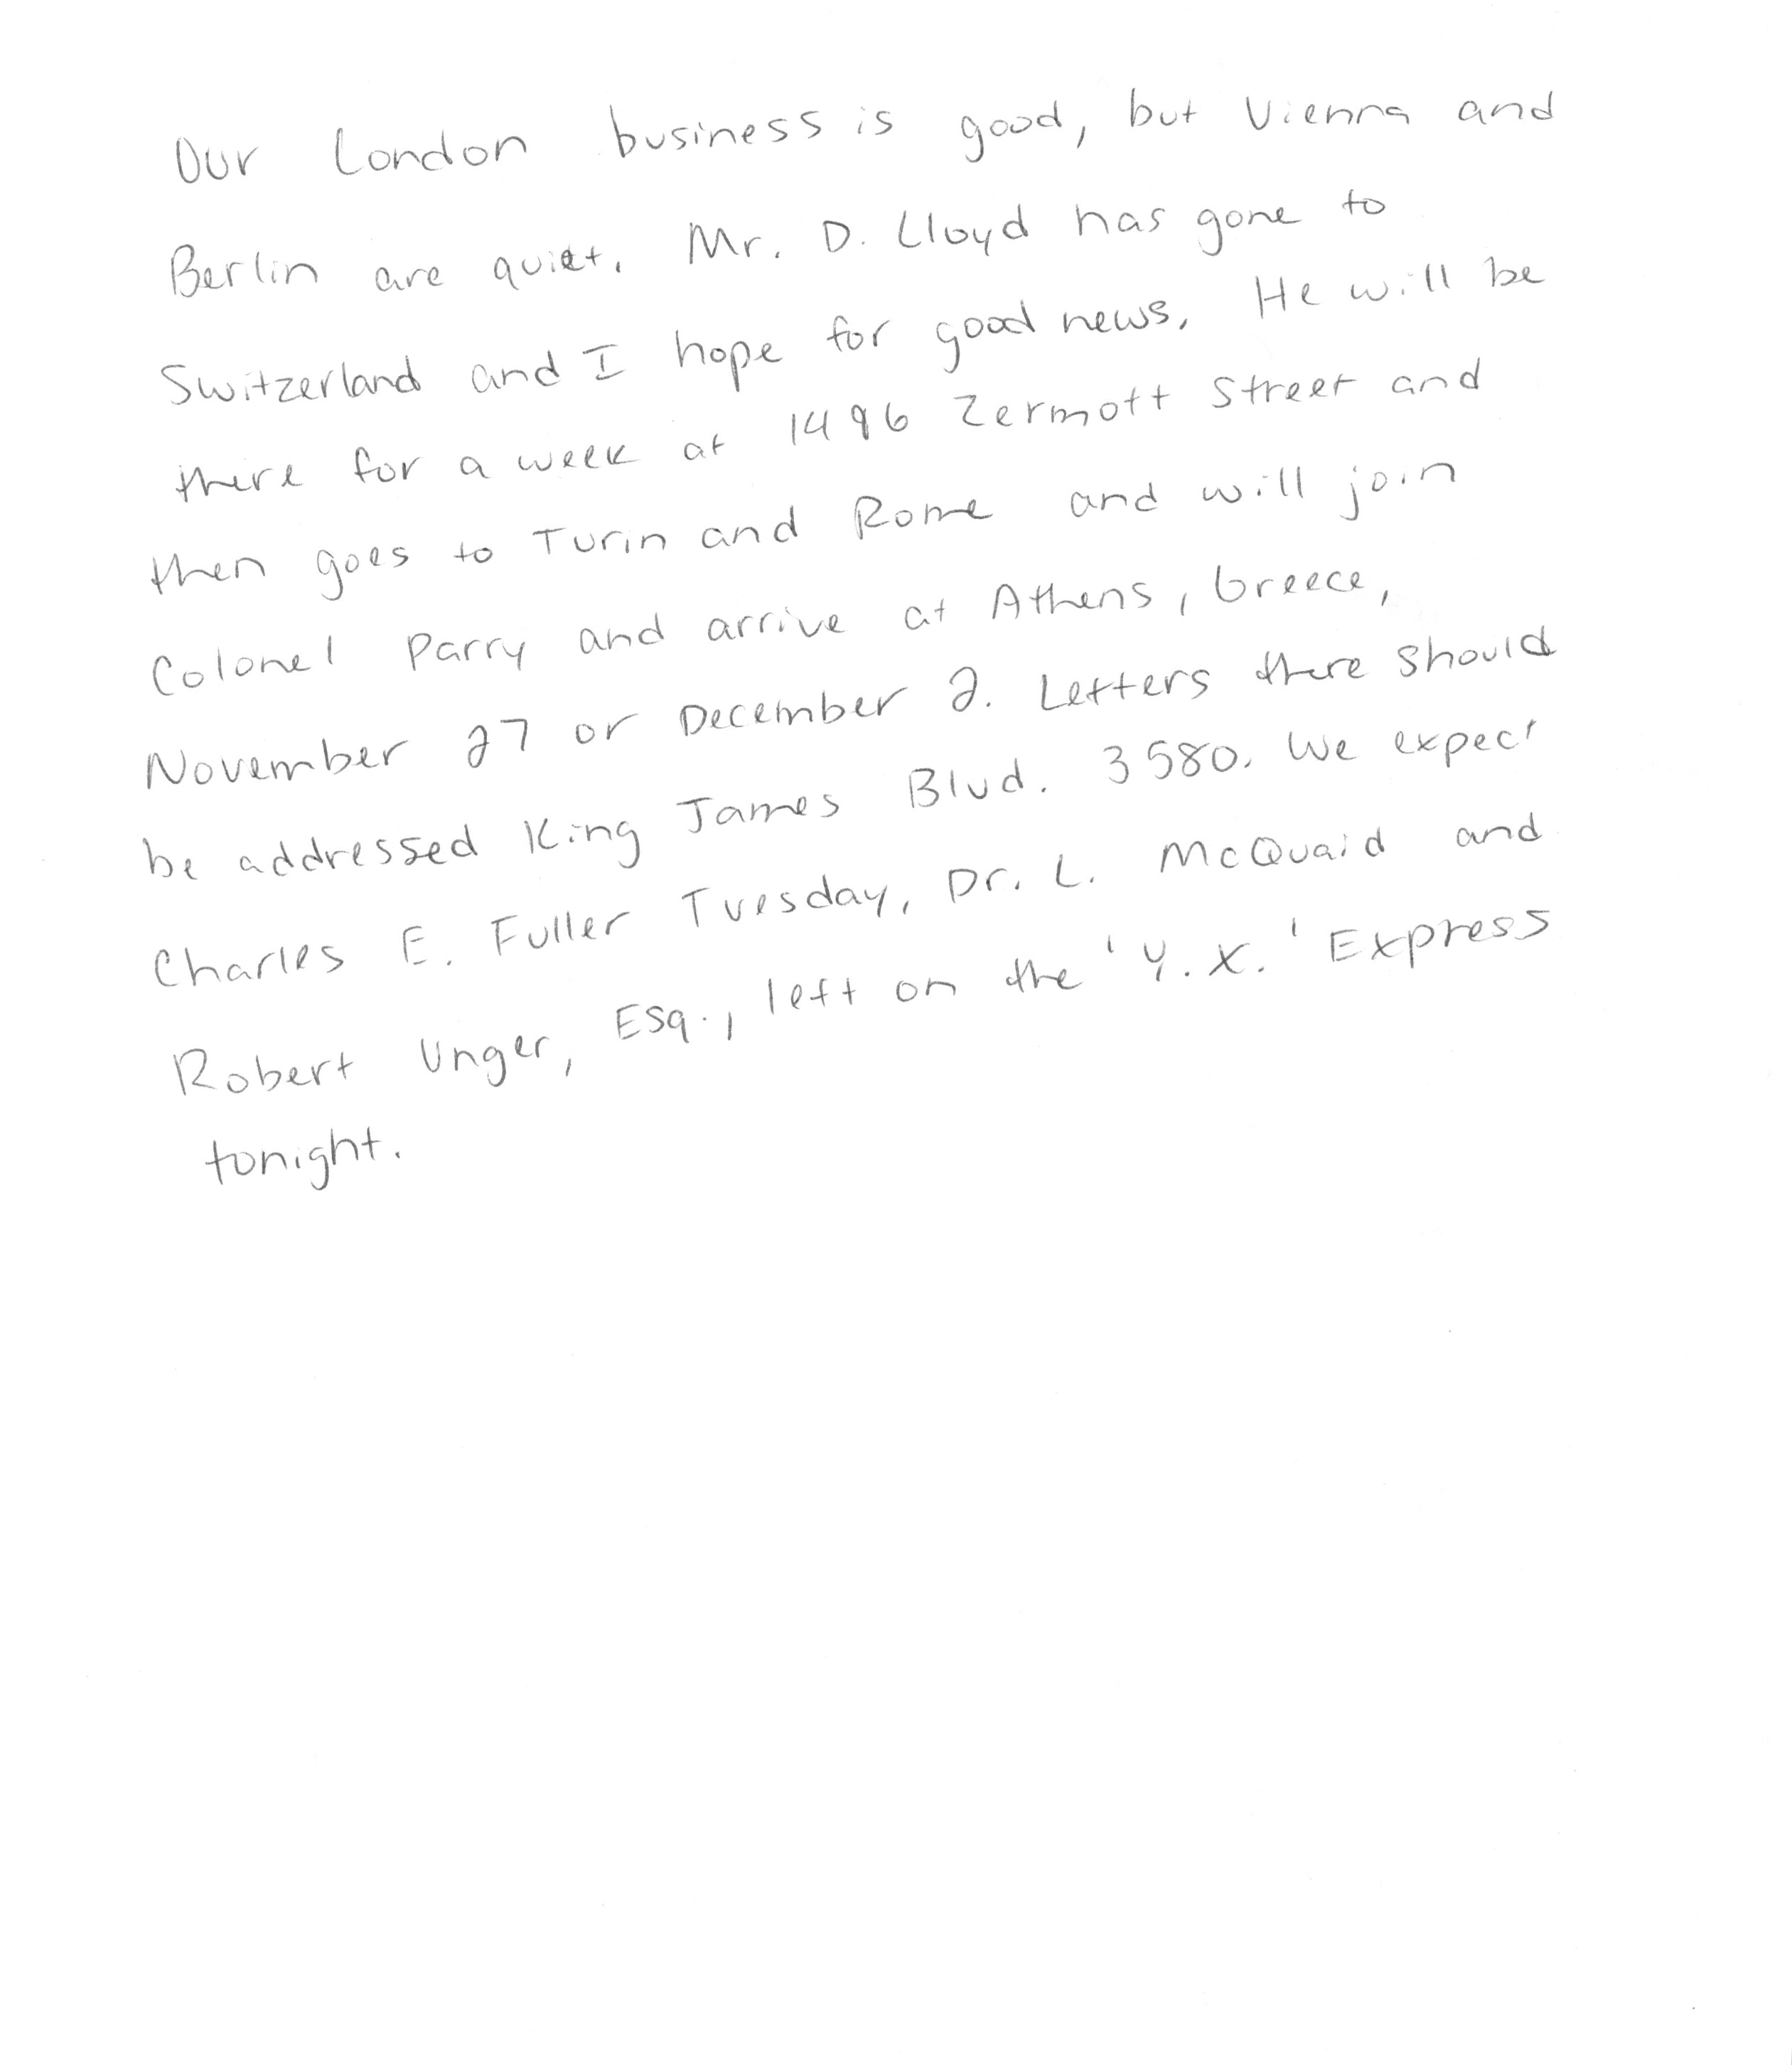 Our London business is good, but Vienna and
Berlin are quiet. Mr. D. Lloyd has gone to
Switzerland and I hope for good news. He will be
there for a week at 1496 Zermott Street and
then goes to Turin and Rome and will join
Colonel Parry and arrive at Athens, Greece,
November 27 or December 2. Letters there should
be addressed King James Blvd. 3580. We expect
Charles E. Fuller Tuesday, Dr. L. McQuaid and
Robert Unger, Esq., left on the 'Y.X.' Express
tonight.